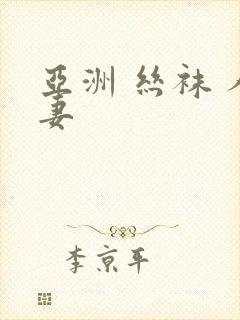 亞洲 絲袜 人
妻
李京平